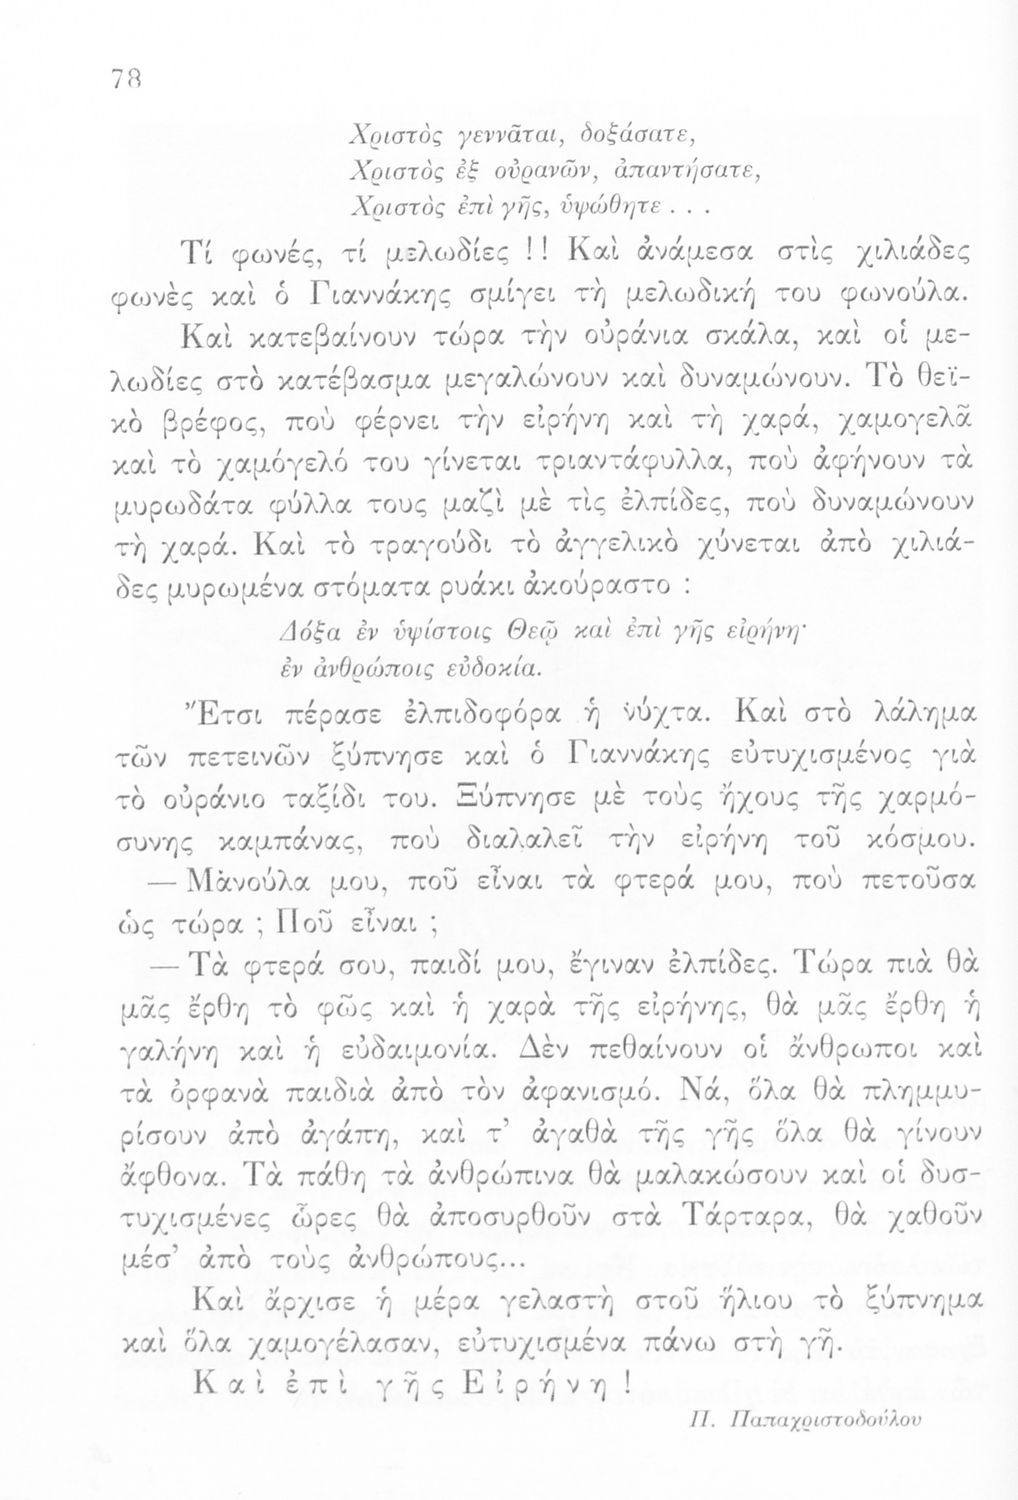 78
Χριστὸς γεννᾶται, δοξάσατε,
Χριστὸς ἐξ οὐρανῶν, ἀπαντήσατε,
Χριστὸς ἐπὶ γῆς, ὑψώθητε . . .
Τί φωνές, τί μελωδίες !! Καὶ ἀνάμεσα στὶς χιλιάδες
φωνὲς καὶ ὁ Γιαννάκης σμίγει τὴ μελωδική του φωνούλα.
Καὶ κατεβαίνουν τώρα τὴν οὐράνια σκάλα, καὶ οἱ με-
λωδίες στὸ κατέβασμα μεγαλώνουν καὶ δυναμώνουν. Τὸ θεϊ-
κὸ βρέφος, ποὺ φέρνει τὴν εἰρήνη καὶ τὴ χαρά, χαμογελᾶ
καὶ τὸ χαμόγελό του γίνεται τριαντάφυλλα, ποὺ ἀφήνουν τὰ
μυρωδάτα φύλλα τους μαζὶ μὲ τὶς ἐλπίδες, ποὺ δυναμώνουν
τὴ χαρά. Καὶ τὸ τραγούδι τὸ ἀγγελικὸ χύνεται ἀπὸ χιλιά-
δες μυρωμένα στόματα ρυάκι ἀκούραστο :
Δόξα ἐν ὑψίστοις Θεῷ καὶ ἐπὶ γῆς εἰρήνη·
ἐν ἀνθρώποις εὐδοκία.
Ἔτσι πέρασε ἐλπιδοφόρα ἡ νύχτα. Καὶ στὸ λάλημα
τῶν πετεινῶν ξύπνησε καὶ ὁ Γιαννάκης εὐτυχισμένος γιὰ
τὸ οὐράνιο ταξίδι του. Ξύπνησε μὲ τοὺς ἤχους τῆς χαρμό-
συνης καμπάνας, ποὺ διαλαλεῖ τὴν εἰρήνη τοῦ κόσμου.
— Μανούλα μου, ποῦ εἶναι τὰ φτερά μου, ποὺ πετοῦσα
ὡς τώρα ; Ποῦ εἶναι ;
— Τὰ φτερά σου, παιδί μου, ἔγιναν ἐλπίδες. Τώρα πιὰ θὰ
μᾶς ἔρθη τὸ φῶς καὶ ἡ χαρὰ τῆς εἰρήνης, θὰ μᾶς ἔρθη ἡ
γαλήνη καὶ ἡ εὐδαιμονία. Δὲν πεθαίνουν οἱ ἄνθρωποι καὶ
τὰ ὀρφανὰ παιδιὰ ἀπὸ τὸν ἀφανισμό. Νά, ὅλα θὰ πλημμυ-
ρίσουν ἀπὸ ἀγάπη, καὶ τ’ ἀγαθὰ τῆς γῆς ὅλα θὰ γίνουν
ἄφθονα. Τὰ πάθη τὰ ἀνθρώπινα θὰ μαλακώσουν καὶ οἱ δυσ-
τυχισμένες ὧρες θὰ ἀποσυρθοῦν στὰ Τάρταρα, θὰ χαθοῦν
μέσ’ ἀπὸ τοὺς ἀνθρώπους...
Καὶ ἄρχισε ἡ μέρα γελαστὴ στοῦ ἥλιου τὸ ξύπνημα
καὶ ὅλα χαμογέλασαν, εὐτυχισμένα πάνω στὴ γῆ.
Καὶ ἐπὶ γῆς Εἰρήνη !
Π. Παπαχριστοδούλου